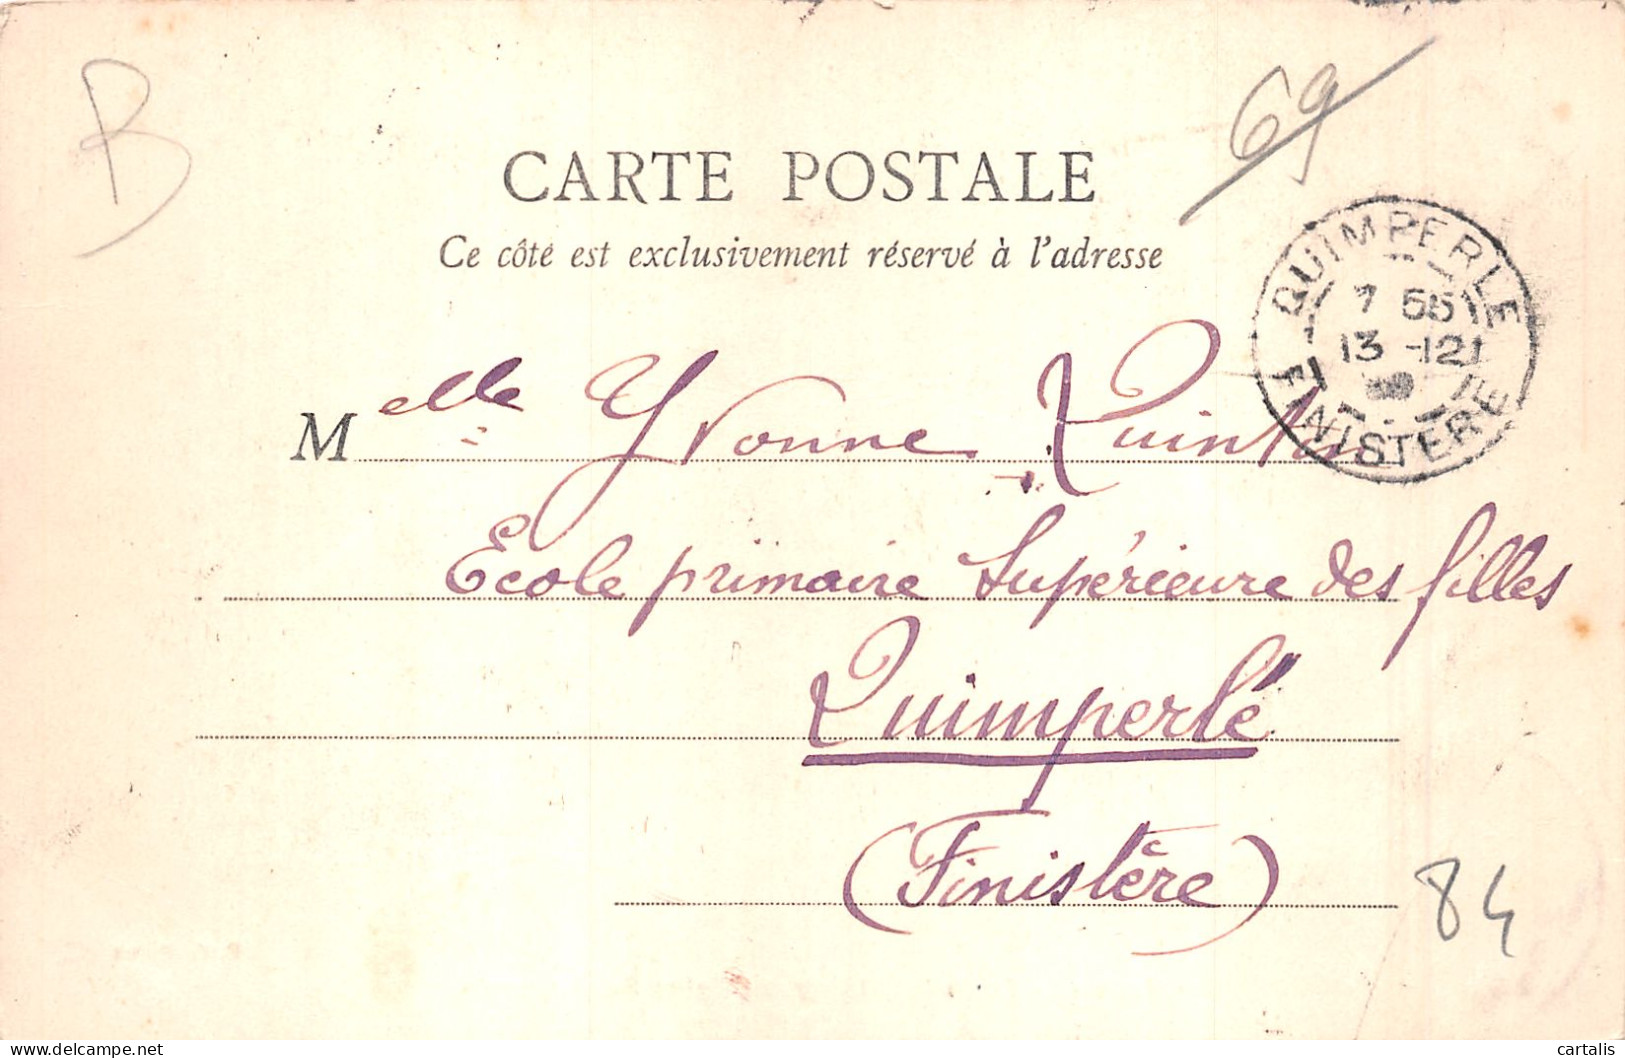 B
69
CARTE POSTALE
Ce côté est exclusivement réservé à l'adresse
QUIMPERLE
7 55
13 -12
FINISTERE
Melle Yvonne Quintin
Ecole primaire Supérieure des filles
Quimperlé
(Finistère)
84
cartalis